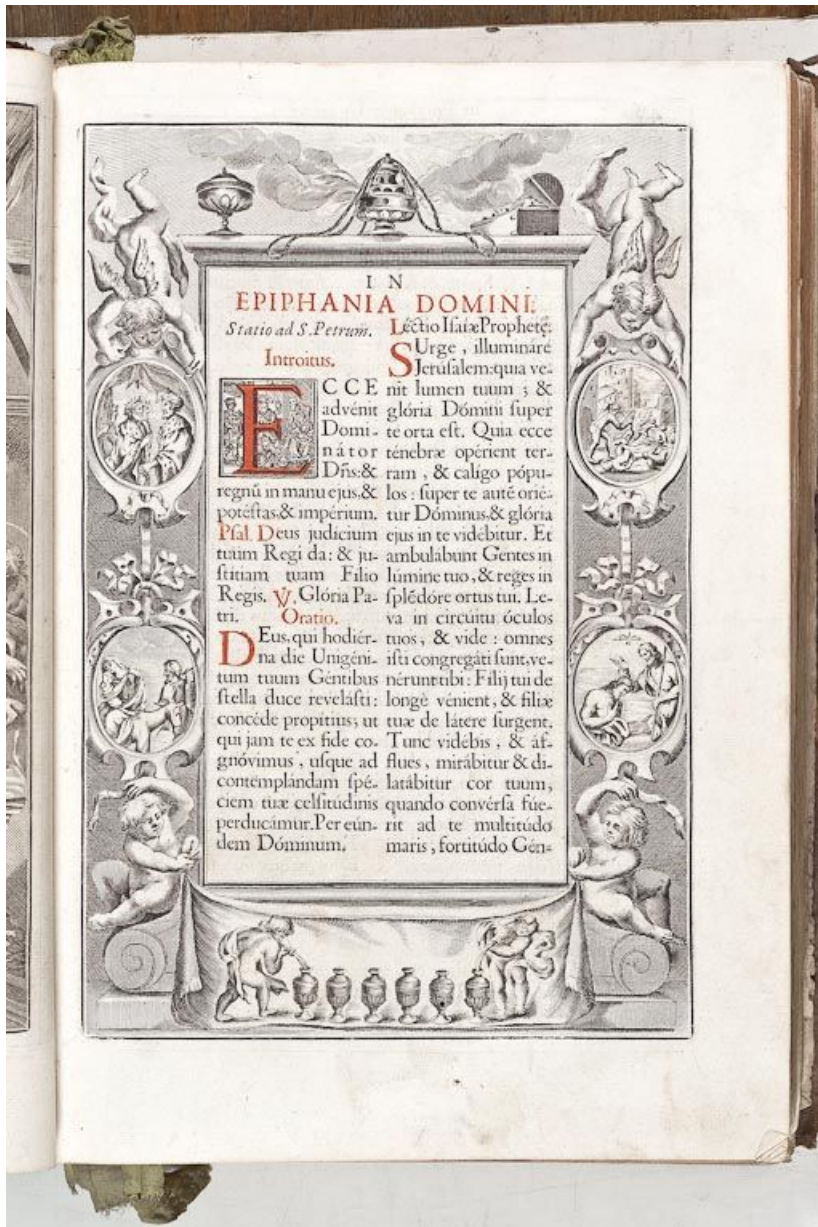 IN
EPIPHANIA DOMINI.
Statio ad S. Petrum.
Introitus.
ECCE
advénit
Domi-
nátor
Dñs:&
regnũ in manu ejus,&
potéstas,& impérium.
Psal. Deus judícium
tuum Regi da: & ju-
stítiam tuam Fílio
Regis. ℣. Glória Pa-
tri. Oratio.
DEus, qui hodiér-
na die Unigéni-
tum tuum Géntibus
stella duce revelásti:
concéde propítius; ut
qui jam te ex fide co-
gnóvimus, usque ad
contemplándam spé-
ciem tuæ celsitúdinis
perducámur. Per eún-
dem Dóminum.
Léctio Isaíæ Prophetę.
SUrge, illumináre
Jerúsalem: quia ve-
nit lumen tuum; &
glória Dómini super
te orta est. Quia ecce
ténebræ opérient ter-
ram, & calígo pópu-
los: super te autẽ orié-
tur Dóminus,& glória
ejus in te vidébitur. Et
ambulábunt Gentes in
lúmine tuo, & reges in
splẽdóre ortus tui. Le-
va in circúitu óculos
tuos, & vide: omnes
isti congregáti sunt, ve-
nérunt tibi: Filij tui de
longè vénient, & fíliæ
tuæ de látere surgent.
Tunc vidébis, & áf-
flues, mirábitur & di-
latábitur cor tuum,
quando convérsa fúe-
rit ad te multitúdo
maris, fortitúdo Gén-